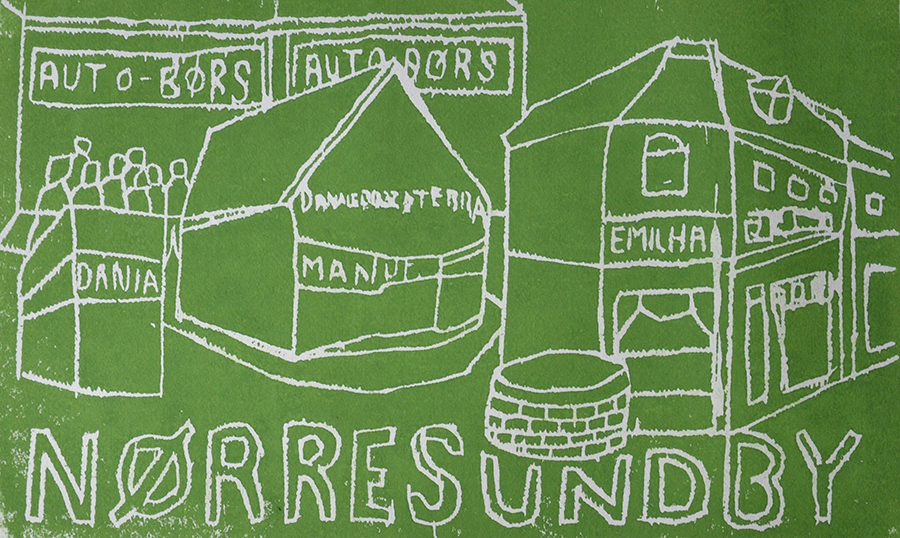 AUTO-BØRS
AUTO-BØRS
MANUE
DANIA
EMILHA
NØRRESUNDBY